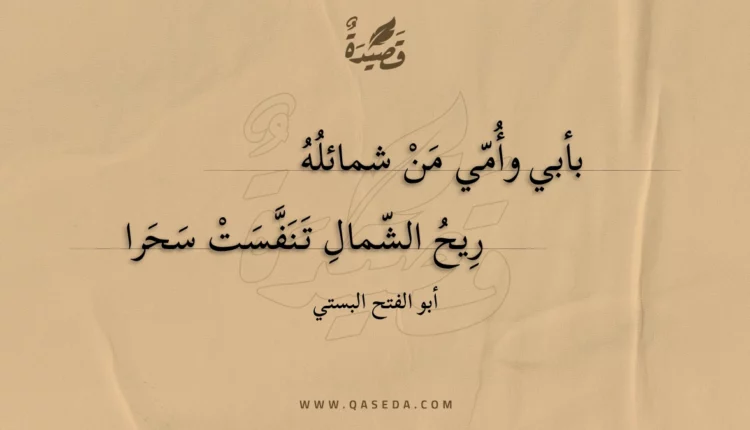 قَصِيْدَةٌ
بأبي وأُمّي مَنْ شمائلُهُ
رِيحُ الشّمالِ تَنَفَّسَتْ سَحَرا
أبو الفتح البستي
WWW.QASEDA.COM